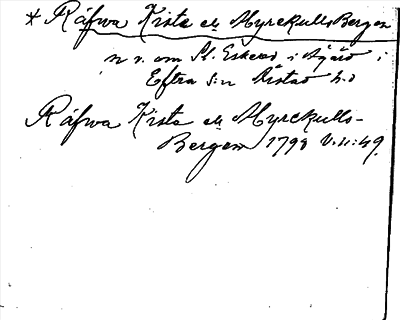 * Räfwa Kista el. Myrekulls Bergen
n v. om St. Eskered i Agård i
Eftra s:n Årstad h:d
Räfwa Kista el. Myrekulls-
Bergen 1798 V.11:49.